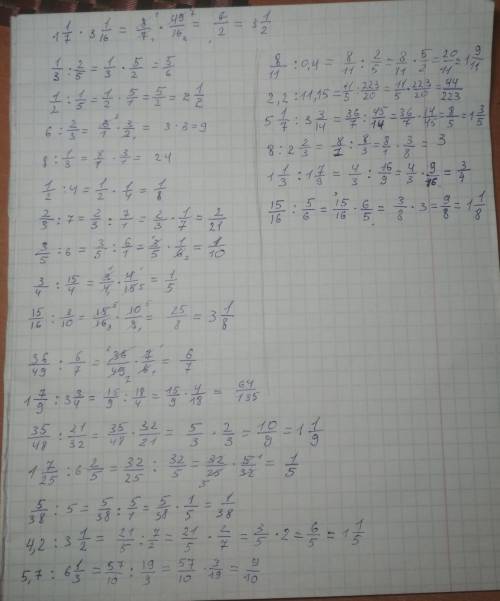 1 1/7 · 3 1/16 = 8/7 · 49/16 = 7/2 = 3 1/2
1/3 : 2/5 = 1/3 · 5/2 = 5/6
1/2 : 1/5 = 1/2 · 5/1 = 5/2 = 2 1/2
6 : 2/3 = 6/1 · 3/2 = 3 · 3 = 9
8 : 1/3 = 8/1 · 3/1 = 24
1/2 : 4 = 1/2 · 1/4 = 1/8
2/3 : 7 = 2/3 : 7/1 = 2/3 · 1/7 = 2/21
3/5 : 6 = 3/5 : 6/1 = 3/5 · 1/6 = 1/10
3/4 : 15/4 = 3/4 · 4/15 = 1/5
15/16 : 3/10 = 15/16 · 10/3 = 25/8 = 3 1/8
36/49 : 6/7 = 36/49 · 7/6 = 6/7
1 7/9 : 3 3/4 = 15/9 : 18/4 = 15/9 · 4/18 = 64/135
35/48 : 21/32 = 35/48 · 32/21 = 5/3 · 2/3 = 10/9 = 1 1/9
1 7/25 : 6 2/5 = 32/25 : 32/5 = 32/25 · 5/32 = 1/5
5/38 : 5 = 5/38 : 5/1 = 5/38 · 1/5 = 1/38
4,2 : 3 1/2 = 21/5 : 7/2 = 21/5 · 2/7 = 3/5 · 2 = 6/5 = 1 1/5
5,7 : 6 1/3 = 57/10 : 19/3 = 57/10 · 3/19 = 9/10
8/11 : 0,4 = 8/11 : 2/5 = 8/11 · 5/2 = 20/11 = 1 9/11
2,2 : 11,15 = 11/5 : 223/20 = 11/5 · 223/20 = 44/223
5 1/7 : 3 3/14 = 36/7 : 45/14 = 36/7 · 14/45 = 8/5 = 1 3/5
8 : 2 2/3 = 8/1 : 8/3 = 8/1 · 3/8 = 3
1 1/3 : 1 7/9 = 4/3 : 16/9 = 4/3 · 9/16 = 3/4
15/16 : 5/6 = 15/16 · 6/5 = 3/8 · 3 = 9/8 = 1 1/8